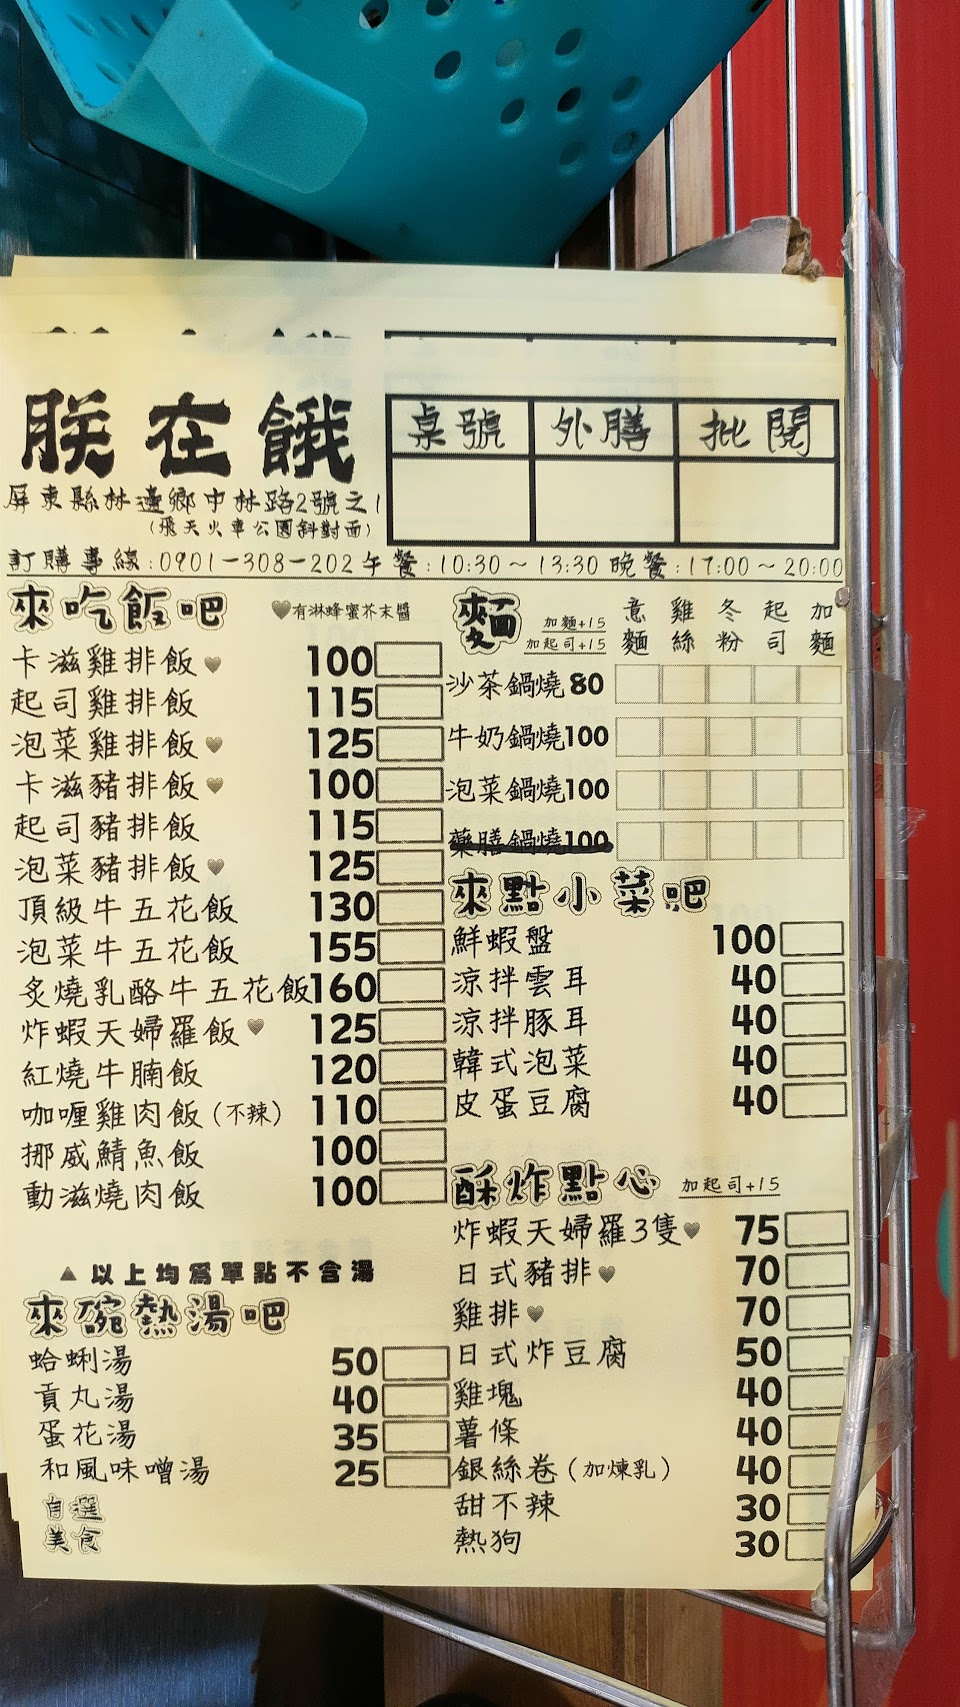 朕在餓
屏東縣林邊鄉中林路2號之1
(飛天火車公園斜對面)
桌號 外膳 批閱
訂購專線:0901-308-202 午餐:10:30~13:30 晚餐:17:00~20:00
來吃飯吧 ♥有淋蜂蜜芥末醬
卡滋雞排飯♥ 100
起司雞排飯 115
泡菜雞排飯♥ 125
卡滋豬排飯♥ 100
起司豬排飯 115
泡菜豬排飯♥ 125
頂級牛五花飯 130
泡菜牛五花飯 155
炙燒乳酪牛五花飯 160
炸蝦天婦羅飯♥ 125
紅燒牛腩飯 120
咖喱雞肉飯(不辣) 110
挪威鯖魚飯 100
動滋燒肉飯 100
▲以上均為單點不含湯
來碗熱湯吧
蛤蜊湯 50
貢丸湯 40
蛋花湯 35
和風味噌湯 25
自選
美食
麵 加麵+15
加起司+15
意麵 雞絲 冬粉 起司 加麵
沙茶鍋燒80
牛奶鍋燒100
泡菜鍋燒100
藥膳鍋燒100
來點小菜吧
鮮蝦盤 100
涼拌雲耳 40
涼拌豚耳 40
韓式泡菜 40
皮蛋豆腐 40
酥炸點心 加起司+15
炸蝦天婦羅3隻♥ 75
日式豬排♥ 70
雞排♥ 70
日式炸豆腐 50
雞塊 40
薯條 40
銀絲卷(加煉乳) 40
甜不辣 30
熱狗 30